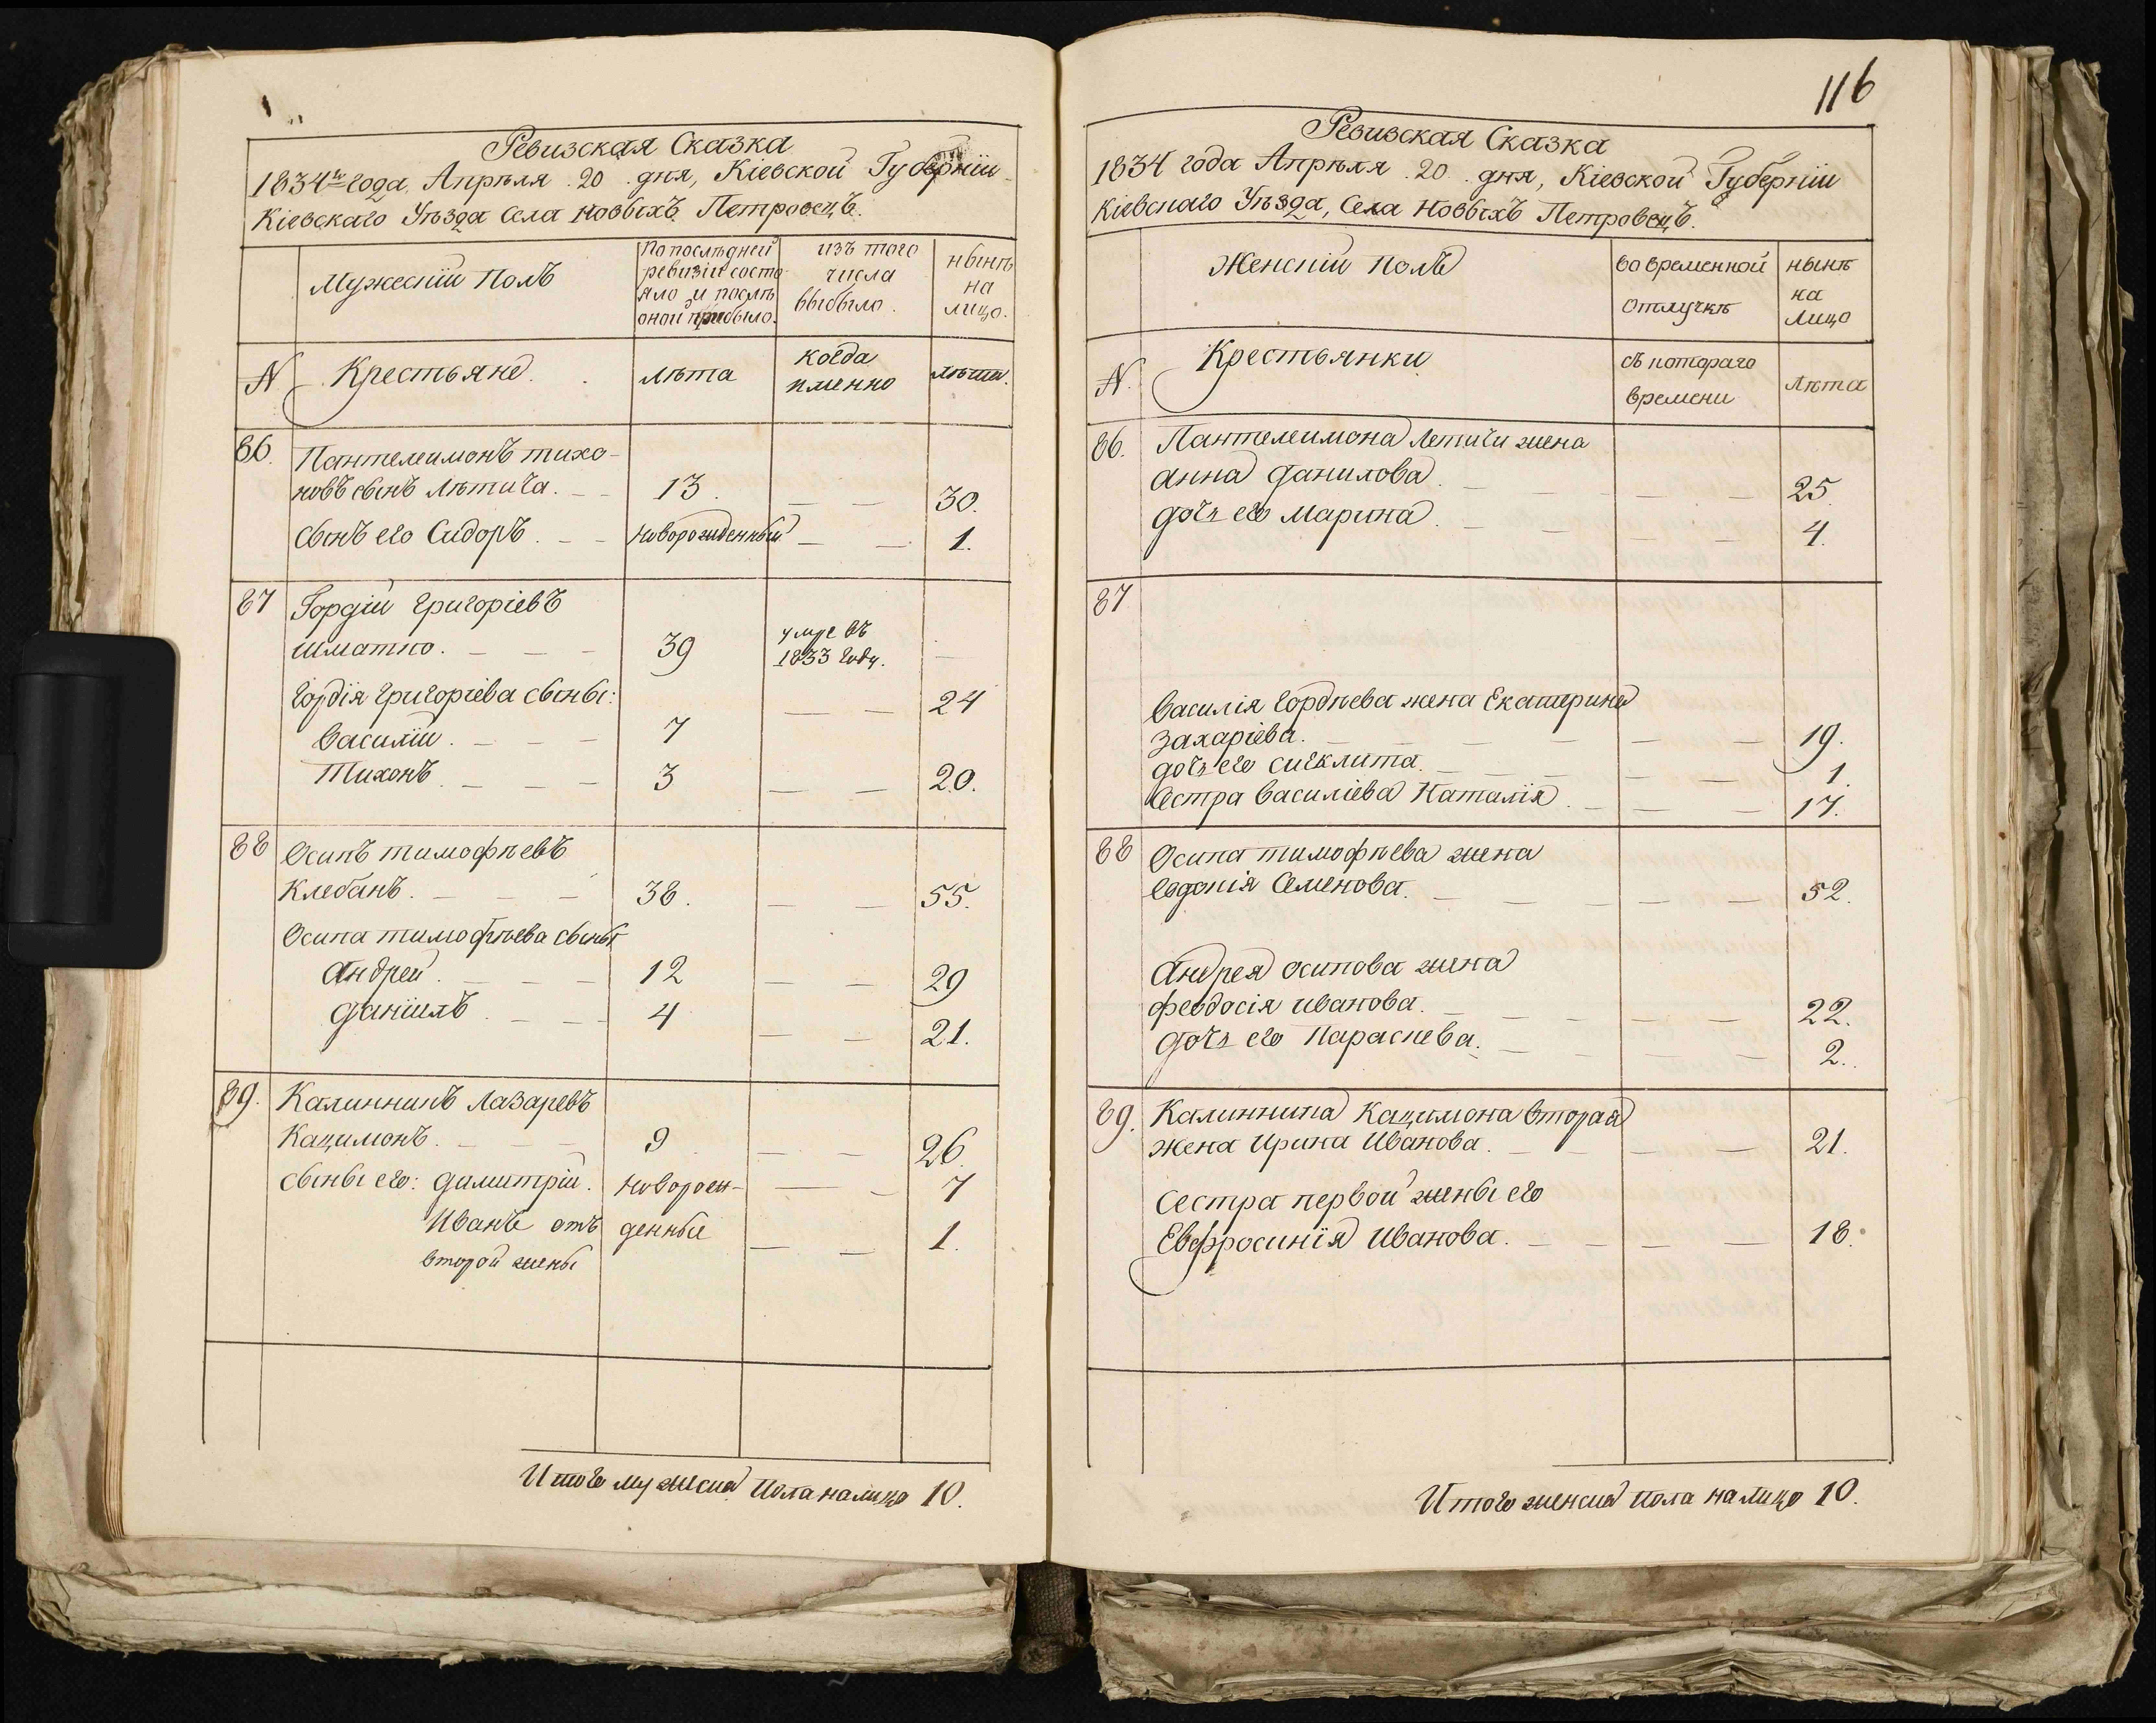 Ревизская Сказка
1834го года Апрѣля 20 дня, Кіевской Губерніи
Кіевскаго Уѣзда Села Новыхъ Петровецъ.
Мужескій Полъ
По послѣдней ревизіи состояло и послѣ оной прибыло.
изъ того числа выбыло.
нынѣ на лицо.
№ Крестьяне.
лѣта
когда именно
лѣта.
86. Пантелеимонъ Тихо-
новъ сынъ Лѣтича. 13. 30.
Сынъ его Сидоръ. новорожденный 1.
87 Гордій Григоріевъ
Шматко. 39 умре въ 1833 году.
Гордія Григоріева сыны:
Василій. 7 24
Тихонъ. 3 20.
88 Осипъ Тимофѣевъ
Клебанъ. 38. 55.
Осипа Тимофѣева сыны
Андрей. 12 29
Даніилъ. 4 21.
89. Калинникъ Лазаревъ
Кацимонъ. 9 26.
Сыны его: Димитрій. новорож- 7
Иванъ отъ денные 1.
второй жены
Итого мужеска пола налицо 10.
116
Ревизская Сказка
1834 года Апрѣля 20 дня, Кіевской Губерніи
Кіевскаго Уѣзда, Села Новыхъ Петровецъ.
Женскій полъ
во временной отлучкѣ
нынѣ на лицо
№. Крестьянки
съ котораго времени
Лѣта
86. Пантелеимона Летичи жена
Анна Данилова. 25
дочь его Марина. 4.
87
Василія Гордѣева жена Екатерина
Захаріева. 19.
дочь его Сигклита. 1.
Сестра Василіева Наталія. 17.
88 Осипа Тимофѣева жена
Евдокія Семенова. 52.
Андрея Осипова жена
Феодосія Иванова. 22.
дочь его Параскева. 2.
89. Калинника Кацимона вторая
жена Ирина Иванова. 21.
Сестра первой жены его
Евфросинія Иванова. 18.
Итого женска пола налицо 10.